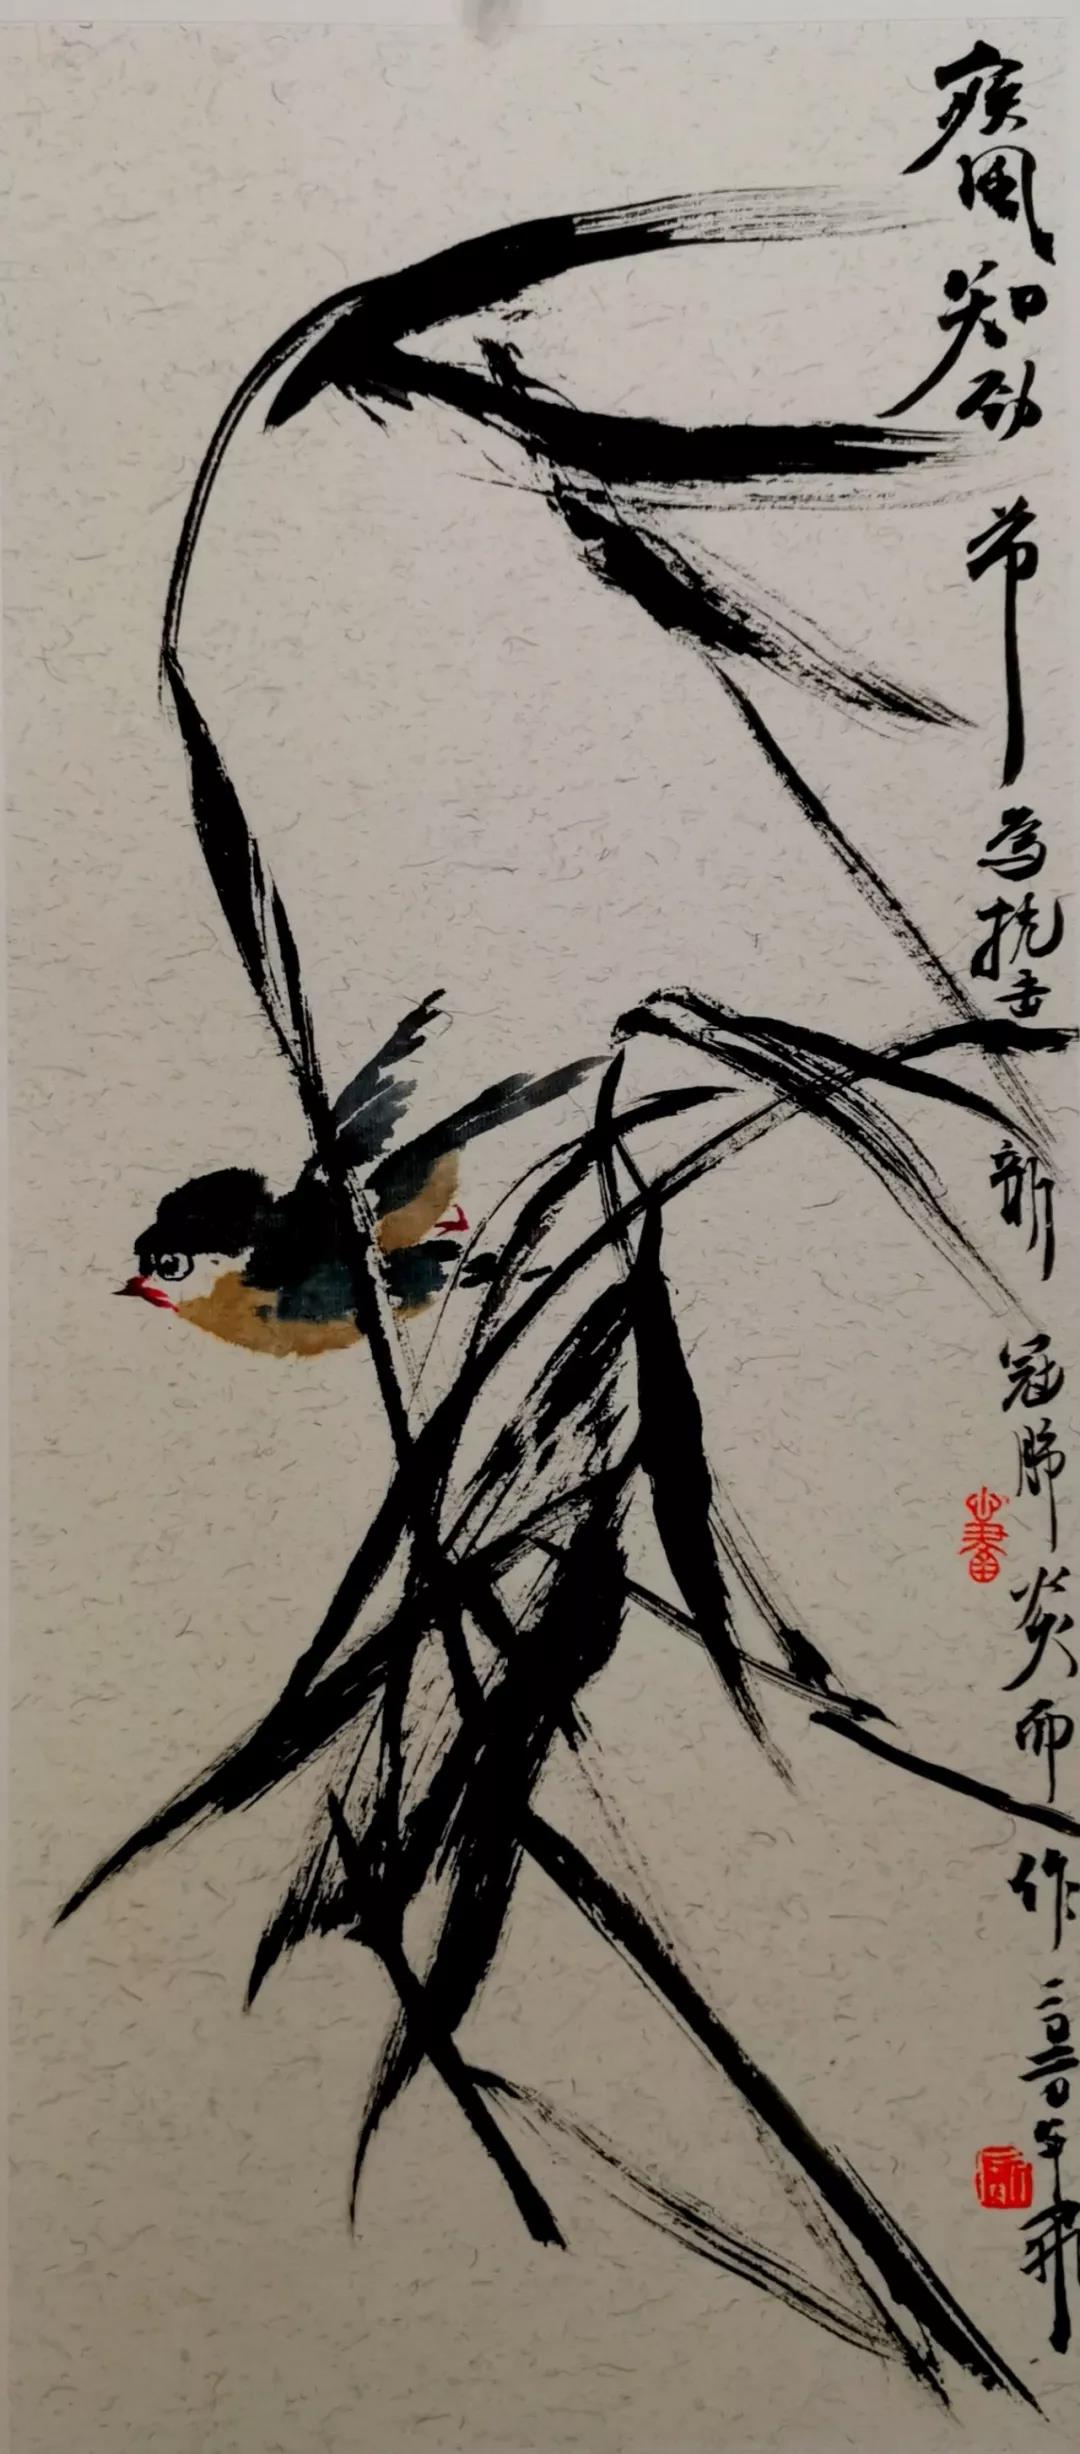 疾风知劲节为抗击新冠肺炎而作二〇二〇年